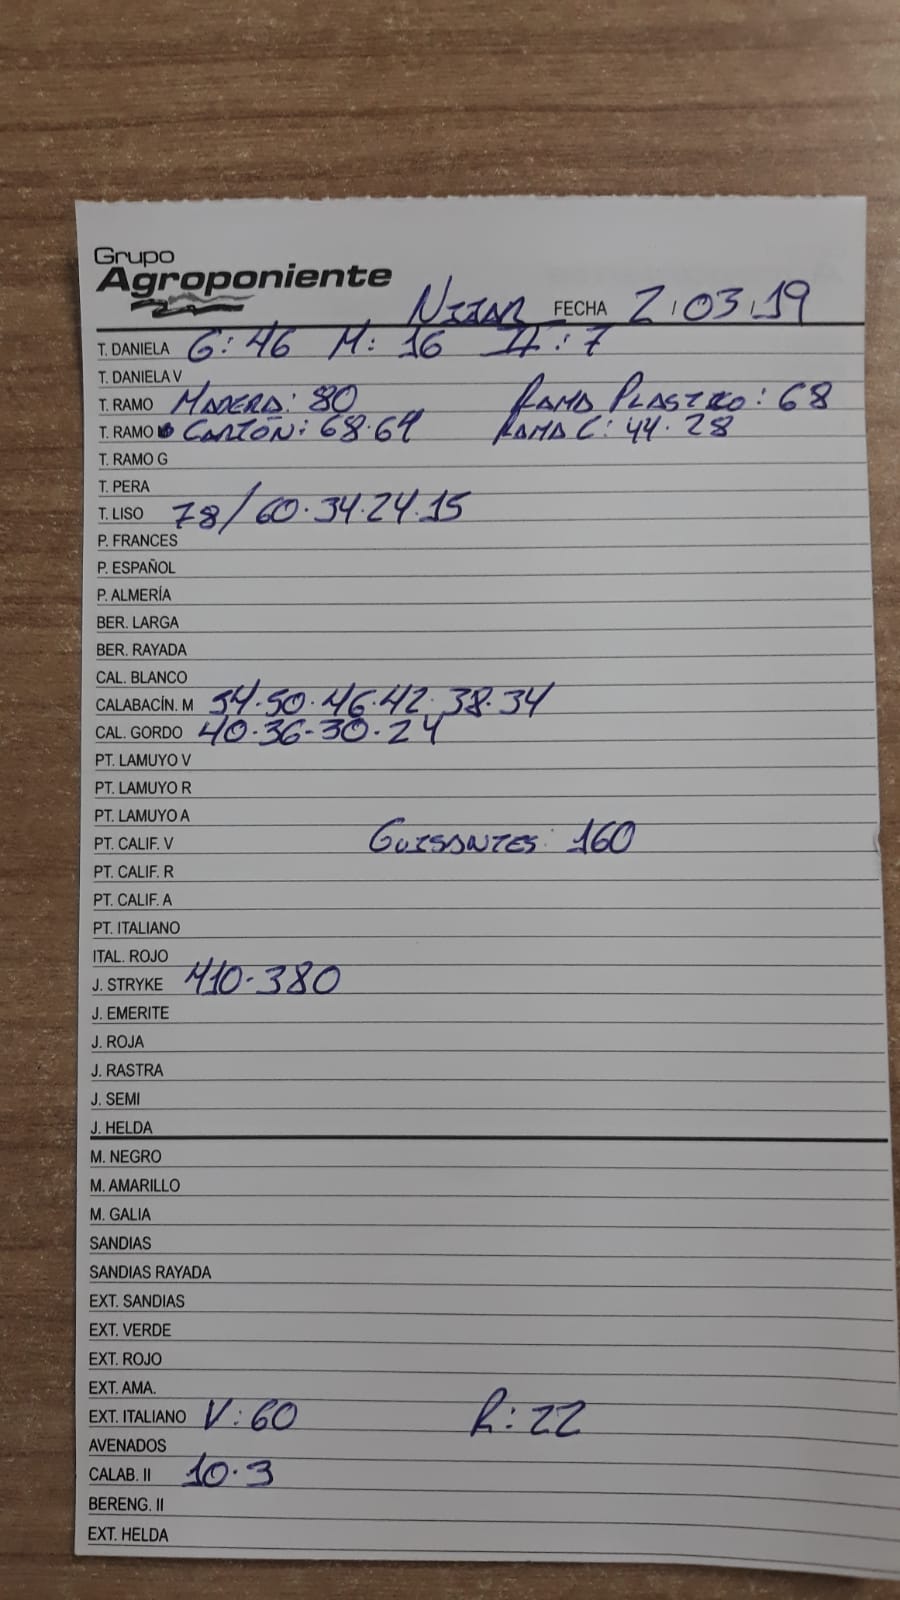 Grupo
Agroponiente
NIJAR FECHA 2/03/19
T. DANIELA G: 46 M: 16 II: 7
T. DANIELA V
T. RAMO MADERA: 80 RAMA PLASTICO: 68
T. RAMO CARTÓN: 68.64 RAMA C: 44.28
T. RAMO G
T. PERA
T. LISO 78/60.34.24.15
P. FRANCES
P. ESPAÑOL
P. ALMERÍA
BER. LARGA
BER. RAYADA
CAL. BLANCO
CALABACÍN. M 54.50.46.42.38.34
CAL. GORDO 40.36-30.24
PT. LAMUYO V
PT. LAMUYO R
PT. LAMUYO A
PT. CALIF. V GUISANTES: 160
PT. CALIF. R
PT. CALIF. A
PT. ITALIANO
ITAL. ROJO
J. STRYKE 410-380
J. EMERITE
J. ROJA
J. RASTRA
J. SEMI
J. HELDA
M. NEGRO
M. AMARILLO
M. GALIA
SANDIAS
SANDIAS RAYADA
EXT. SANDIAS
EXT. VERDE
EXT. ROJO
EXT. AMA.
EXT. ITALIANO V: 60 R: 22
AVENADOS
CALAB. II 10.3
BERENG. II
EXT. HELDA